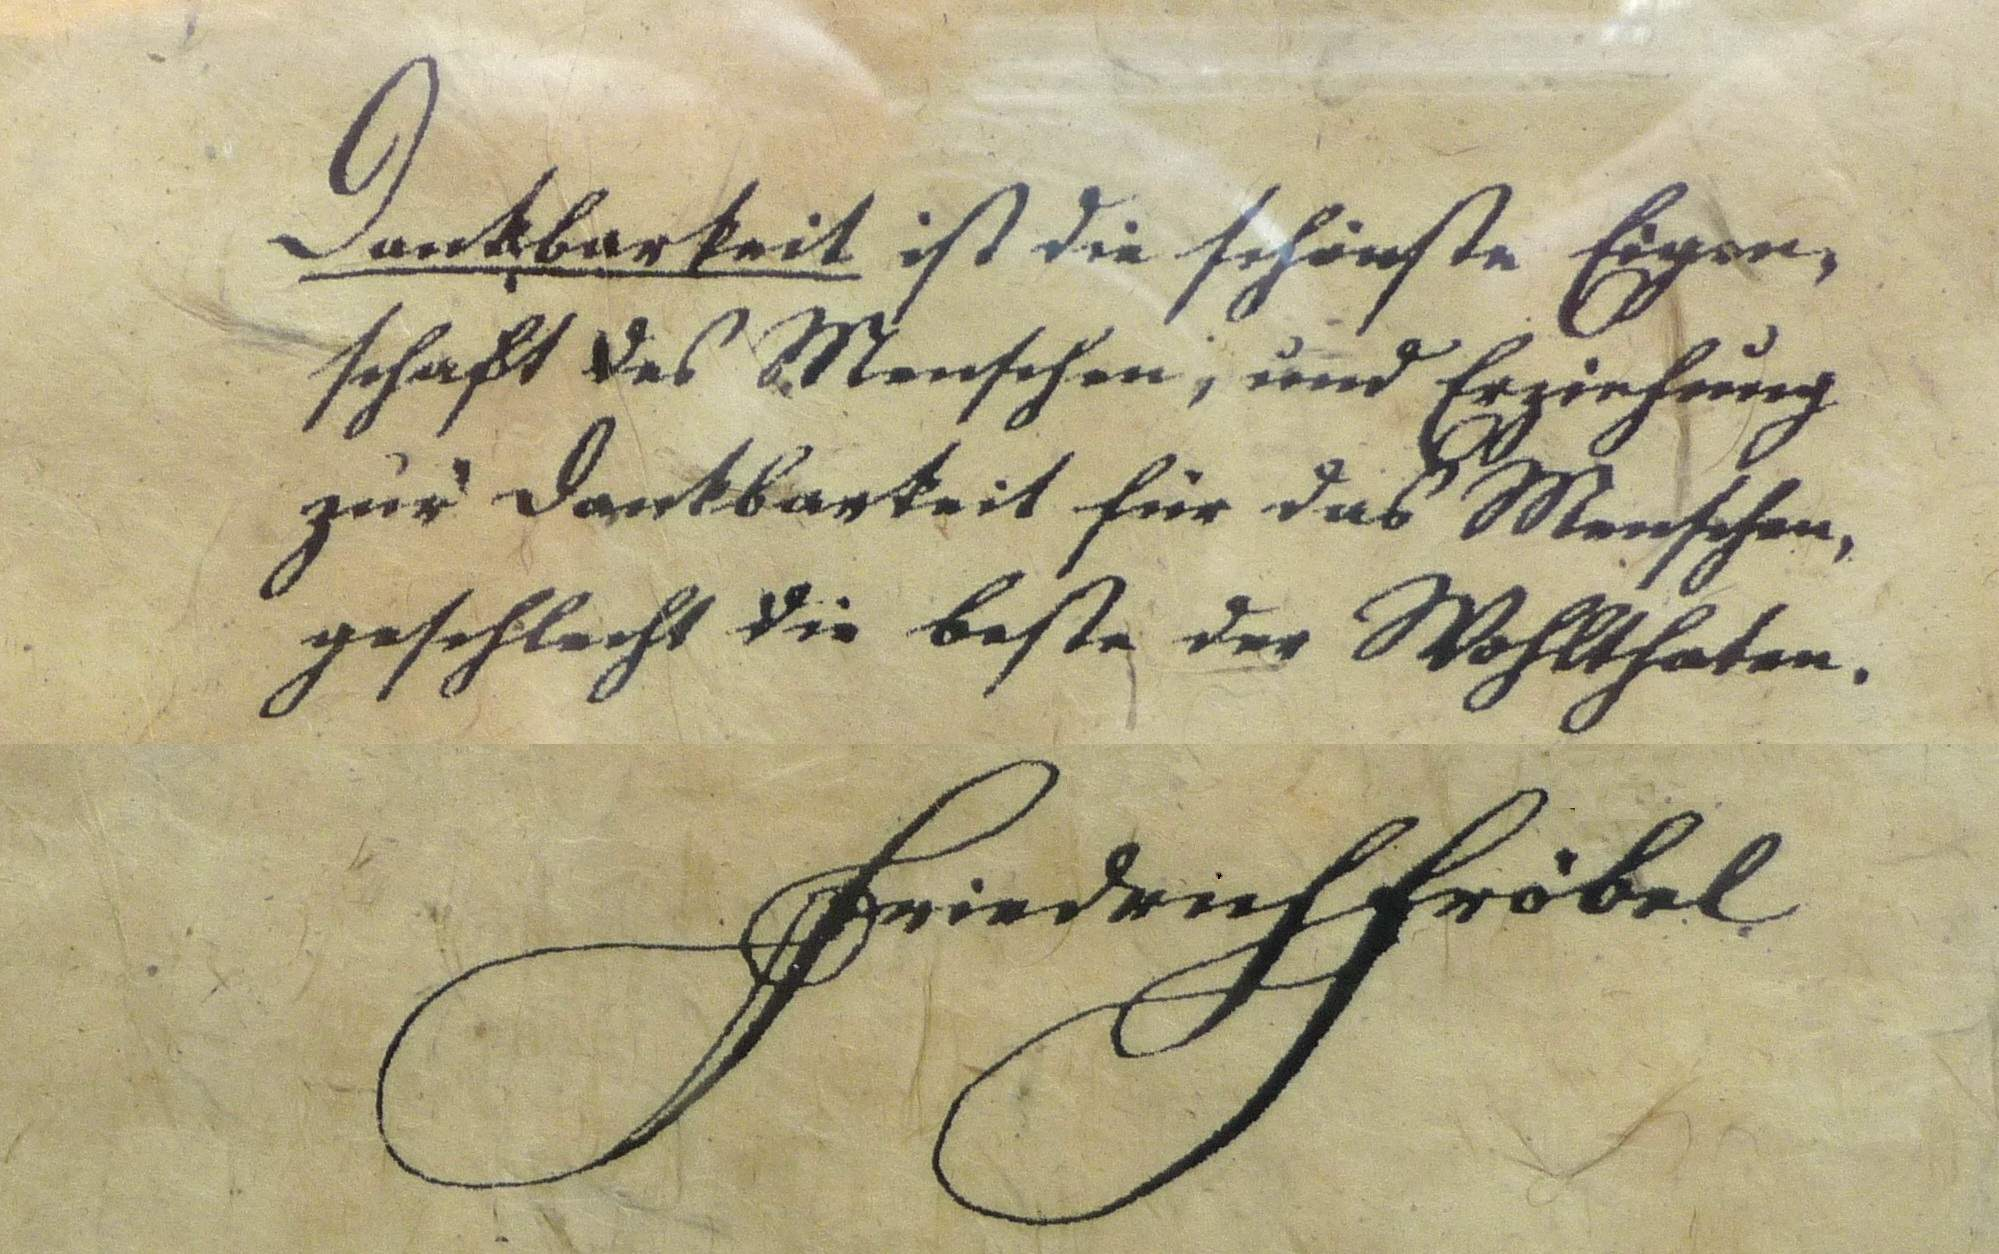 Dankbarkeit ist die schönste Eigen-
schaft des Menschen, und Erziehung
zur Dankbarkeit für das Menschen-
geschlecht die beste der Wohlthaten.
Friedrich Fröbel